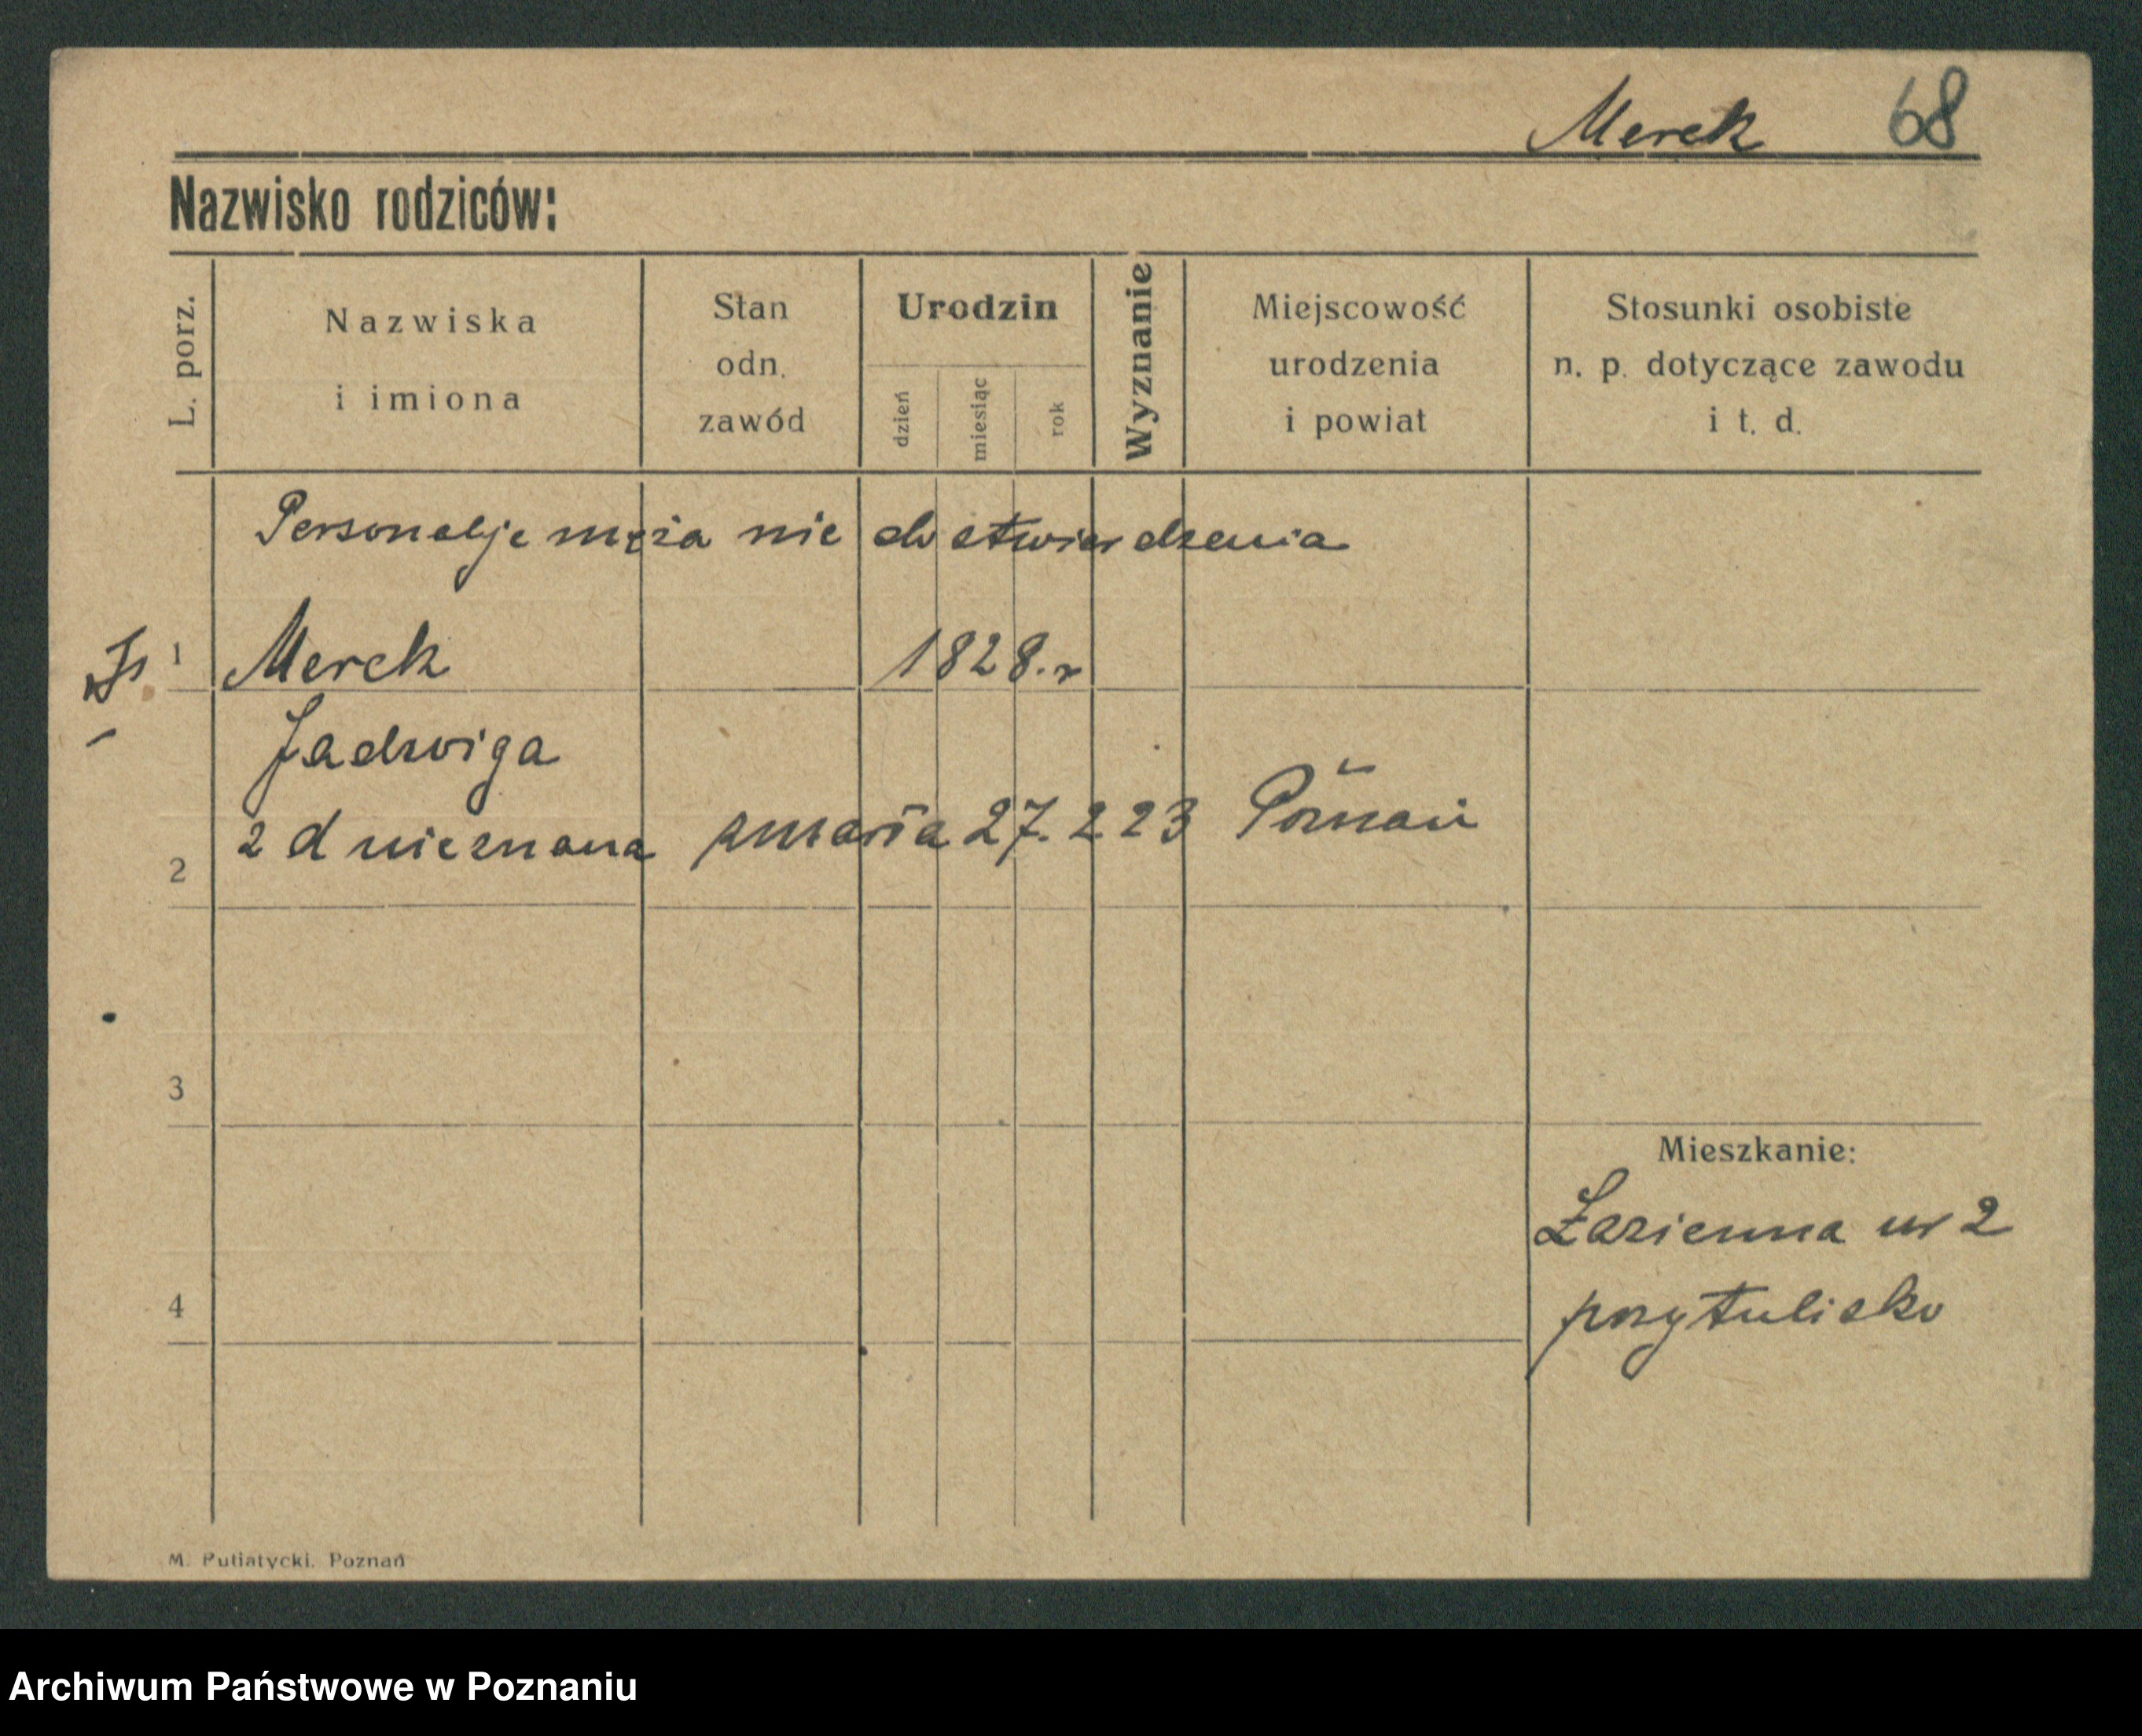 Merek 68
Nazwisko rodziców:
L. porz.
Nazwiska
i imiona
Stan
odn.
zawód
Urodzin
dzień
miesiąc
rok
Wyznanie
Miejscowość
urodzenia
i powiat
Stosunki osobiste
n. p. dotyczące zawodu
i t. d.
Personalje męża nie do stwierdzenia
1 Merek 1828.r
Jadwiga
2 d nieznana zmarła 27.2 23 Poznań
2
3
Mieszkanie:
Łazienna nr 2
4
przytulisko
M. Putiatycki. Poznań
Archiwum Państwowe w Poznaniu